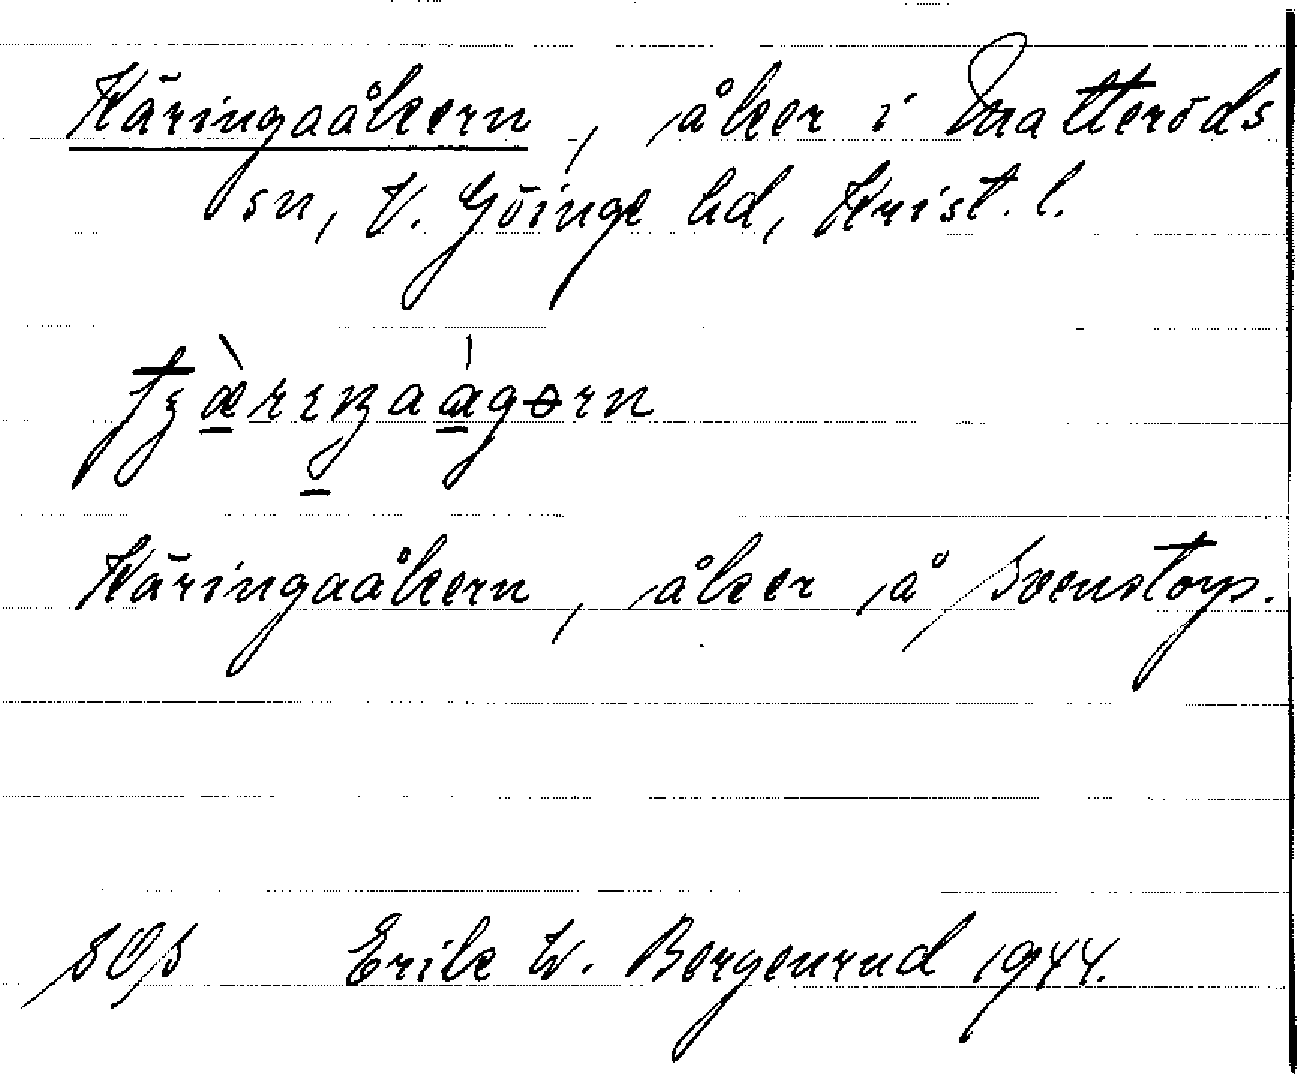 Käringaåkern, åker i Matteröds
sn, V. Göinge hd, Krist. l.
Käringaåkern, åker å Svenstorp.
SOS Erik W. Bergenrud 1944.